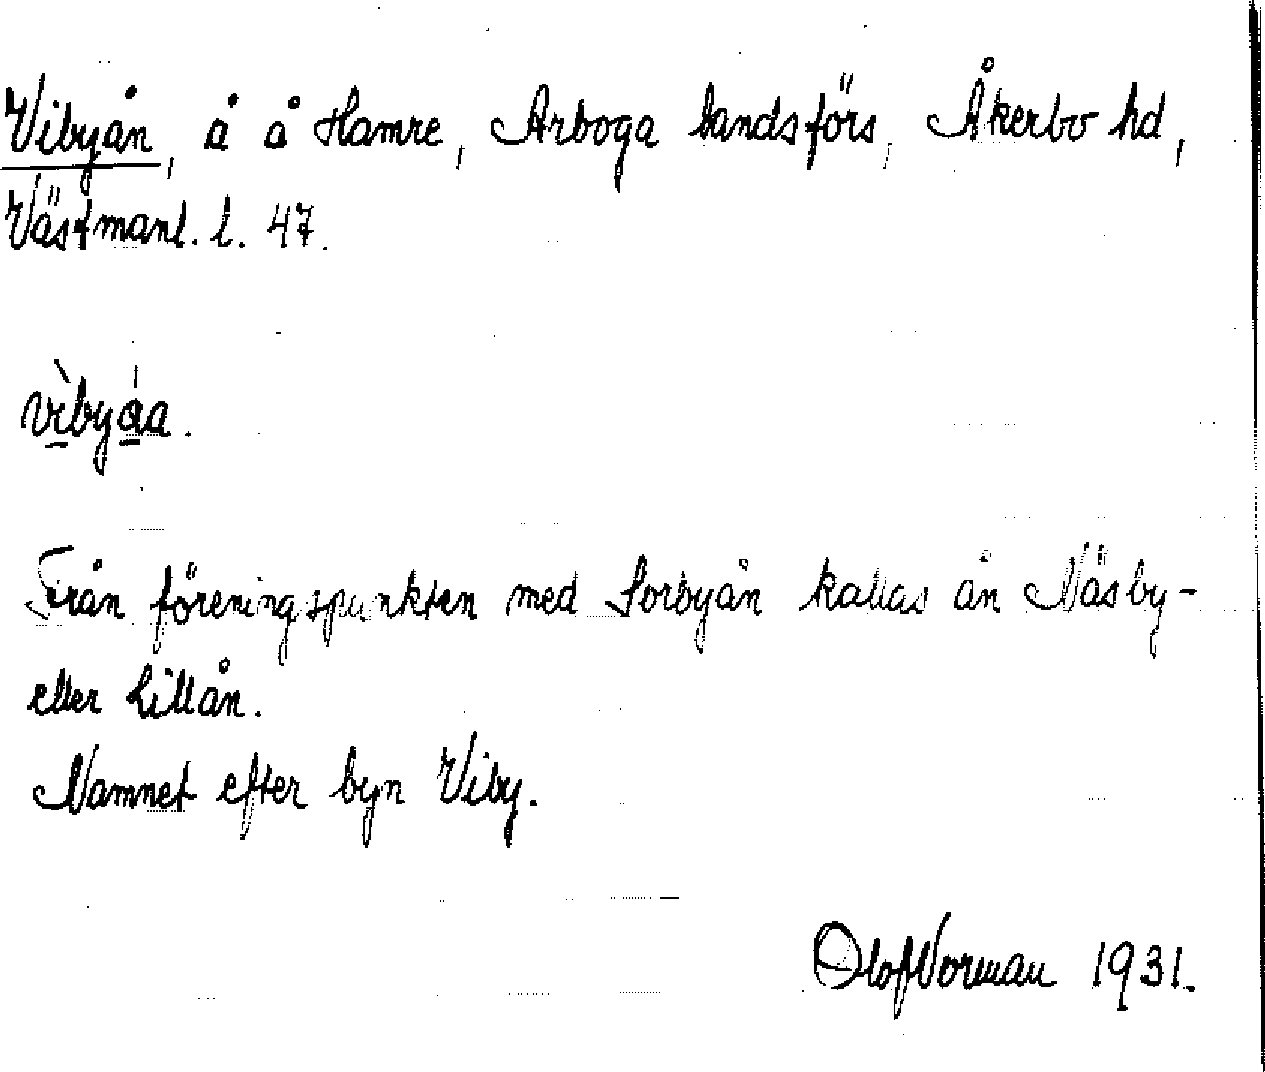 Vibyån, å å Hamre, Arboga landsförs, Åkerbo hd,
Västmanl. l. 47.
vìbyáa.
Från föreningspunkten med Sorbyån kallas ån Näsby-
eller Lillån.
Namnet efter byn Viby.
Olof Norman 1931.